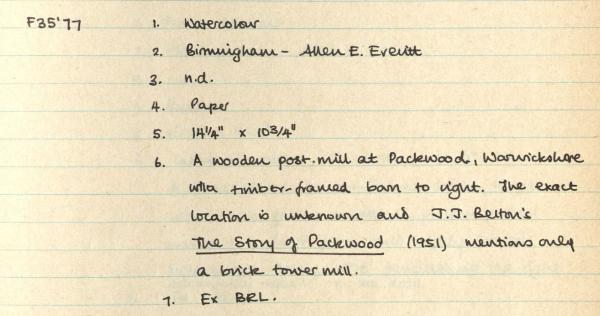 F35'77 1. Watercolour
2. Birmingham - Allen E. Everitt
3. n.d.
4. Paper
5. 14 1/4" x 10 3/4"
6. A wooden post-mill at Packwood, Warwickshire
with timber-framed barn to right. The exact
location is unknown and J.J. Belton's
The Story of Packwood (1951) mentions only
a brick tower mill.
7. Ex BRL.